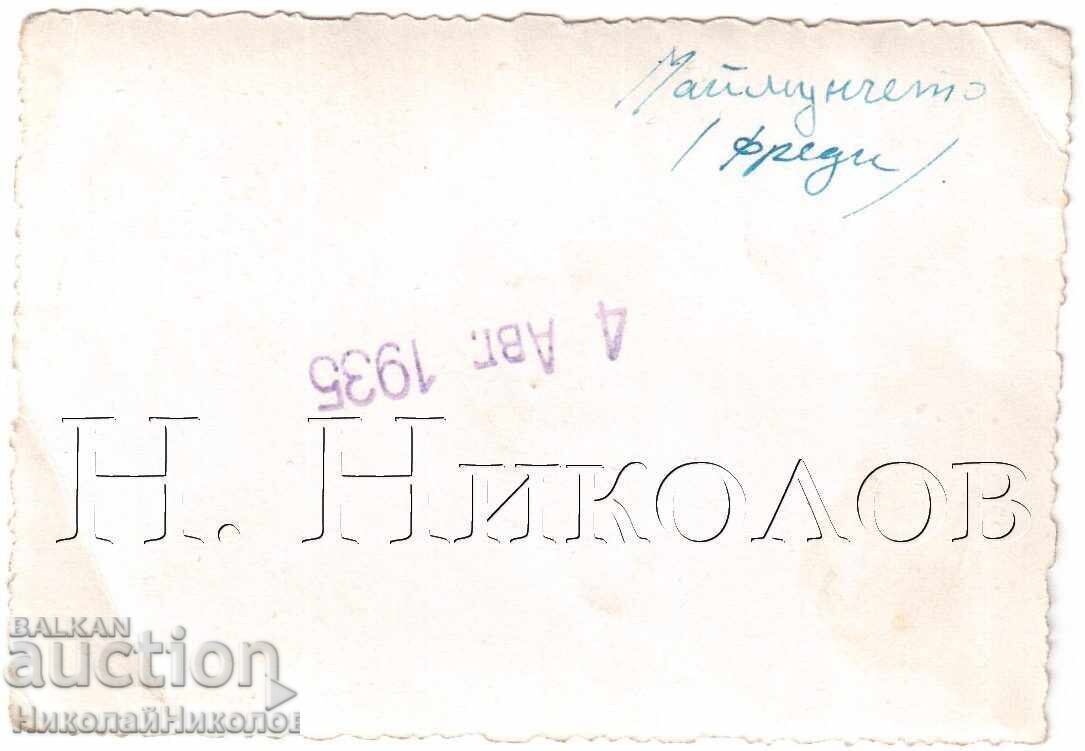 Маймунчето
/ фреди /
4 Авг. 1935
Н. Николов
BALKAN
auction
НиколайНиколов